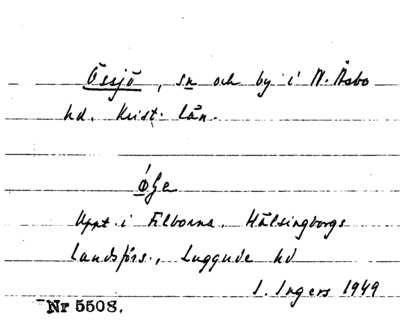 Össjö, sn och by i N. Åsbo
hd. Krist. län.
Uppt. i Filborna, Hälsingborgs
landsförs., Luggude hd
I. Ingers 1949
Nr 5508.